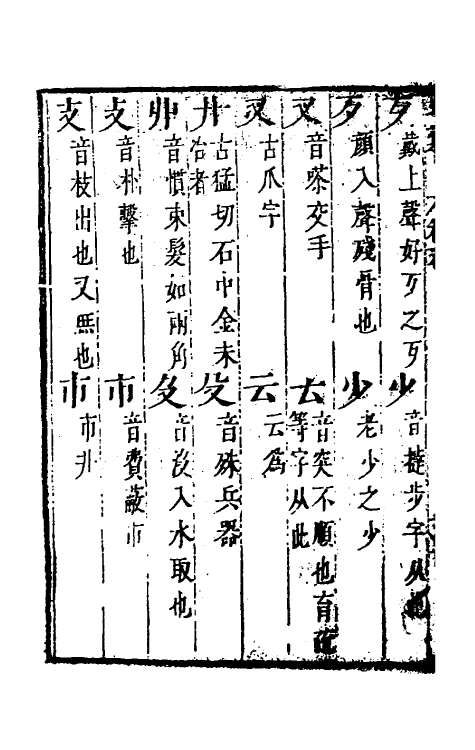 歹 戴上聲好歹之歹 少 音撻步字从
歺 顏入聲殘骨也 少 老少之少
叉 音哆交手 𠫓 音突不順也育 等字从此
㕚 古爪字 云 云爲
卝 古猛切石中金未冶者 殳 音殊兵器
丱 音慣束髮如兩角 𠬛 音没入水取也
攴 音朴擊也 巿 音費蔽巿
支 音枝出也又無也 市 市井